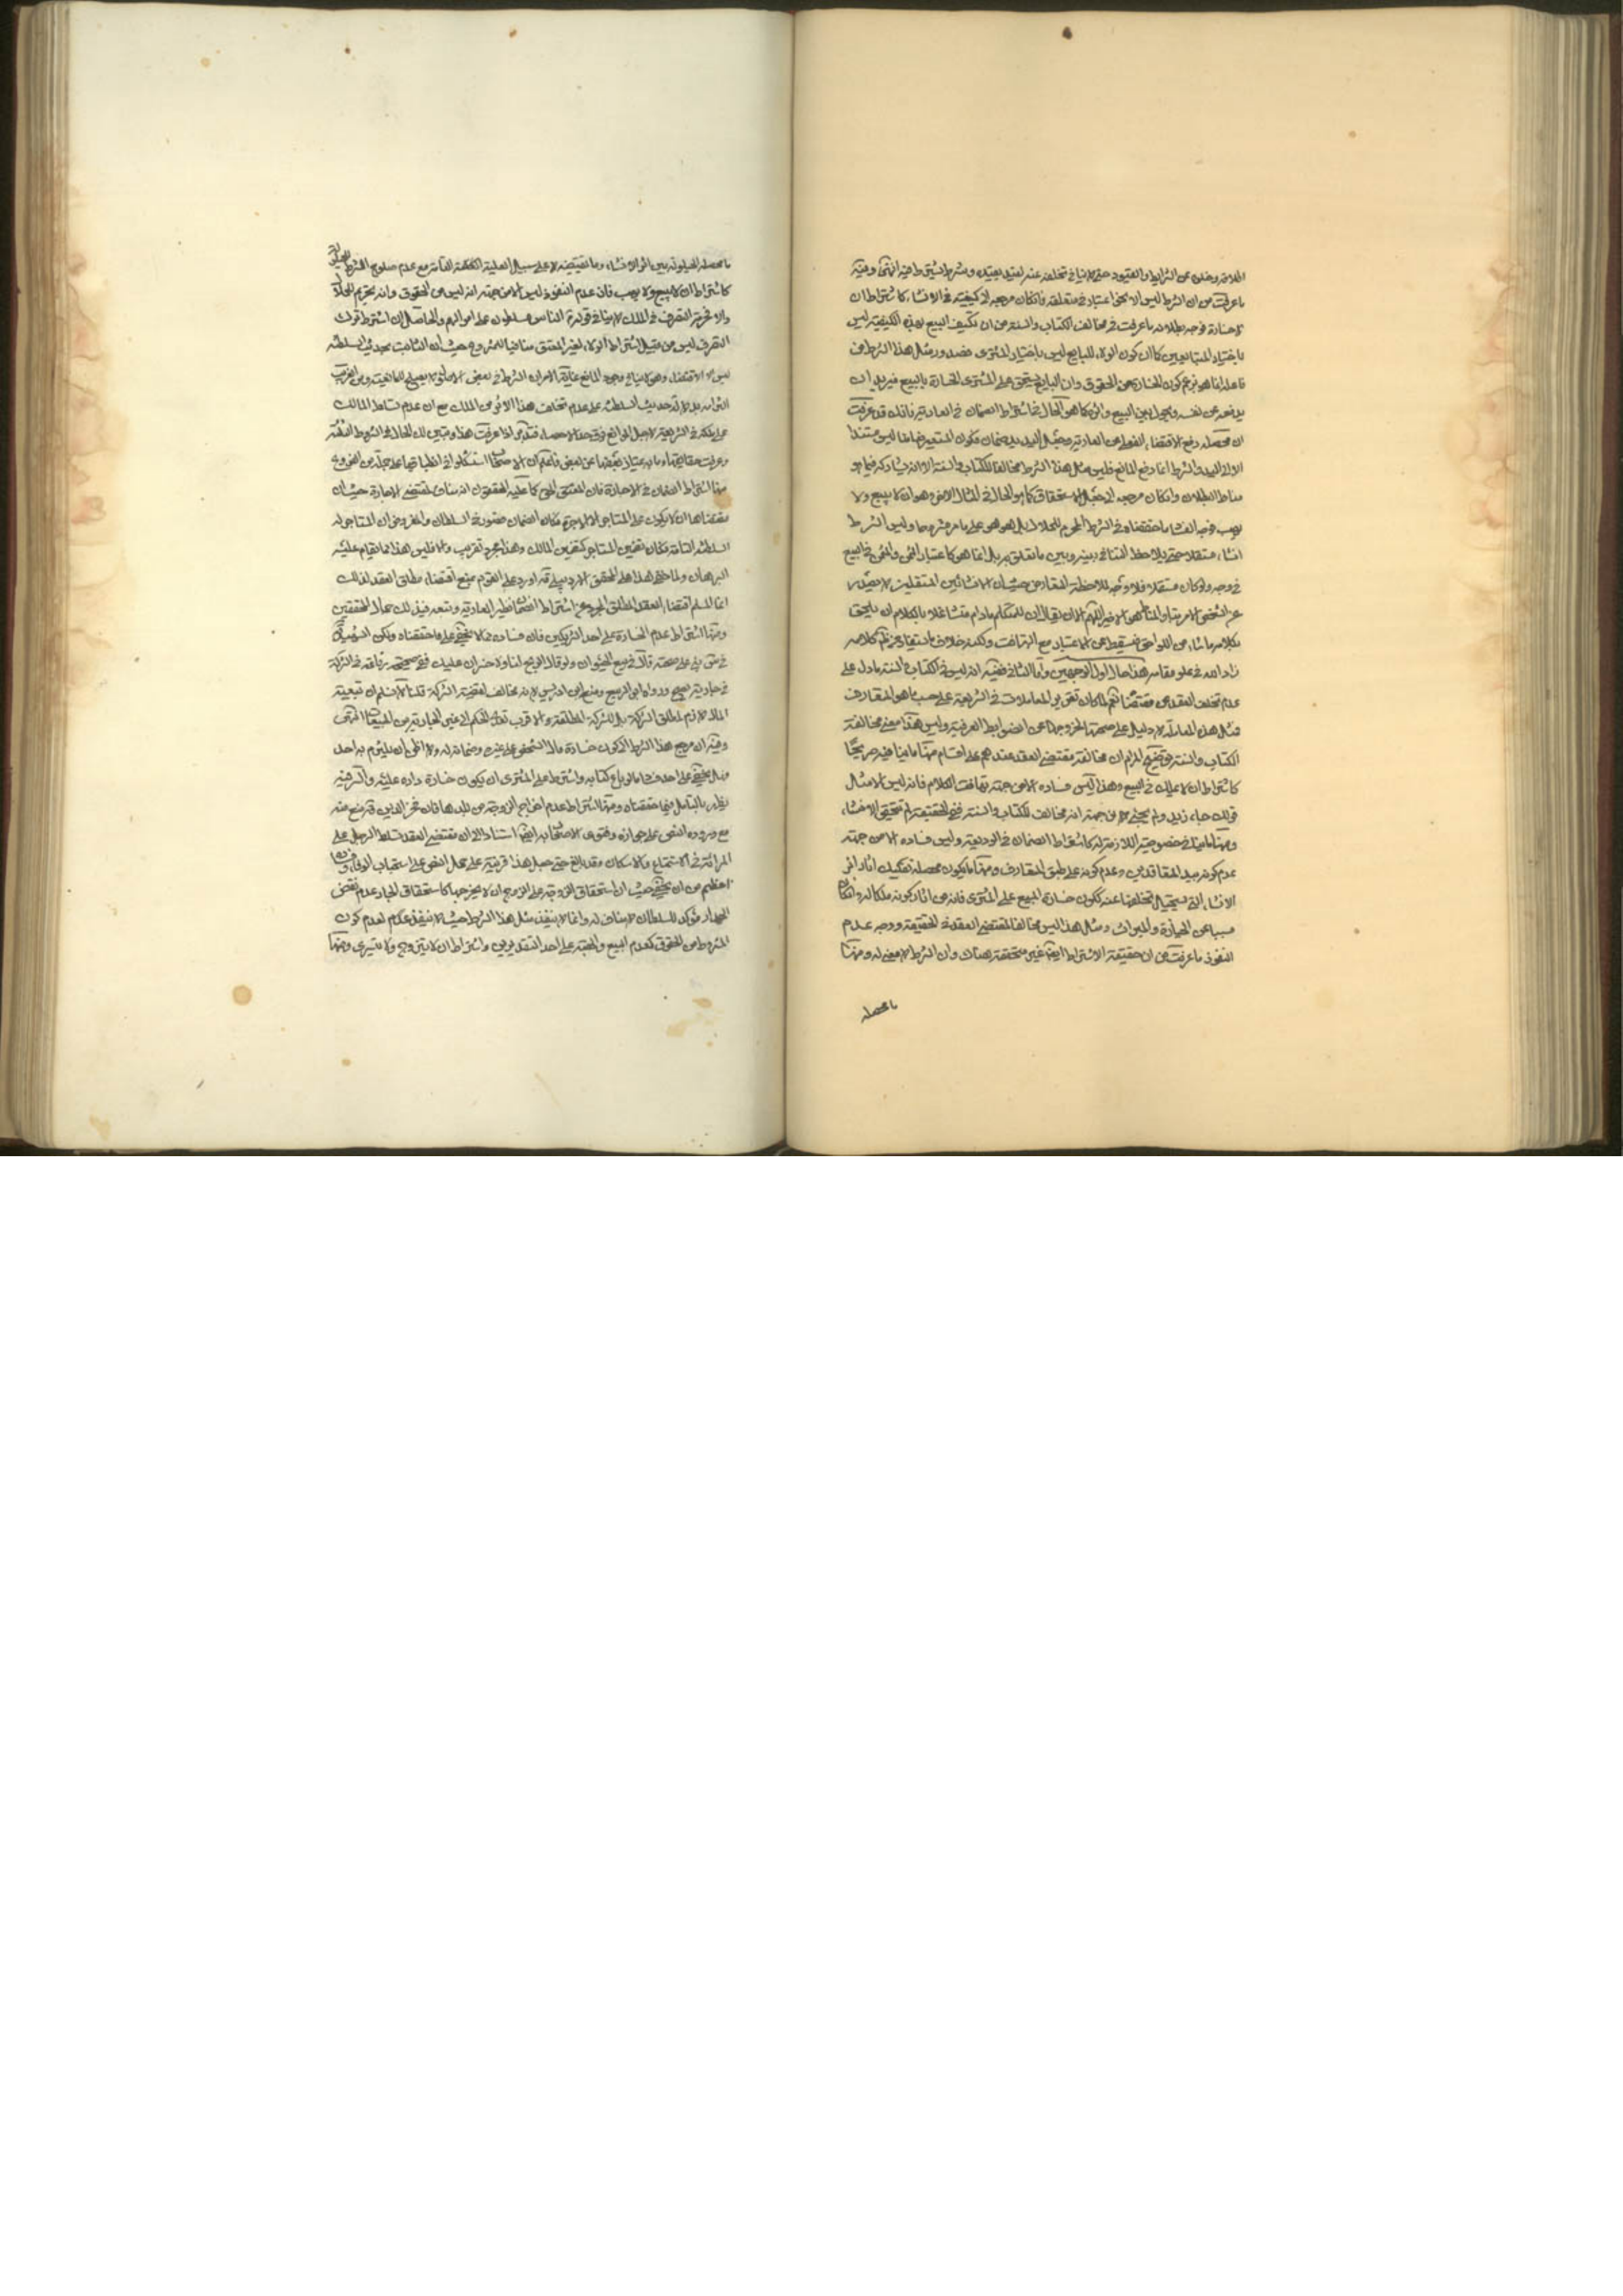 ما عرفت من ان الشرط ليس الا نحو اعتبار في متعلقه فان كان مرجعه الى كيفية في الانشاء كاشتراط ان
لا خسارة فوجه بطلانه ما عرفت في مخالف الكتاب والسنة من ان تكيف البيع بهذه الكيفية ليس
باختيار المتبايعين كما ان كون الولاء للبايع ليس باختيار المشتري فصدور مثل هذا الشرط من
فاعله انما هو بزعم كون الخسارة من الحقوق وان البايع يستحق على المشتري الخسارة بالبيع فيريد ان
يدفعه عن نفسه ويحول بين البيع واثره كما هو الحال في اشتراط الضمان في العارية فانك قد عرفت
ان محصله دفع الاقتضاء الفعلي من العارية وجعل اليد يد ضمان فكون المستعير ضامنا ليس مستندا
الا الى اليد والشرط انما دفع المانع فليس مثل هذا الشرط مخالفا للكتاب والسنة الا انه يشاركه فيما هو
مناط البطلان وان كان مرجعه الى جعل الاستحقاق كما هو الحال في المثال الاخر وهو ان لا يبيع ولا
يهب فوجه الفساد ما حققناه في الشرط المحرم للحلال بل هو هو على ما مر مشروحا وليس الشرط
انشاء مستقلا حتى يلاحظ التنافي بينه وبين ما تعلق به بل انما هو كاعتبار الثمن والمثمن في البيع
في وجه ولو كان مستقلا فلا وجه لملاحظة التعارض حيث ان الانشائين المستقلين لا يصدر
بكلامه ما شاء من اللواحق فيسقط عن الاعتبار مع التهافت ولكنه خلاف ما يستفاد من ظهر كلامه
زاد الله في علو مقامه هذا حال اول الوجهين واما الثاني ففيه انه ليس في الكتاب والسنة ما دل على
عدم تخلف العقد عن مقتضاه نعم لما كان تقرير المعاملات في الشريعة على حسب ما هو المتعارف
فمثل هذه المعاملة لا دليل على صحتها لخروجها عن الضوابط العرفية وليس هذا معنى مخالفة
الكتاب والسنة وتوضيح المرام ان مخالفة مقتضى العقد عندهم على اقسام منها ما ينافيه صريحا
كاشتراط ان لا يملك في البيع وهذا ليس فساده الا من جهة تهافت الكلام فانه ليس الا مثل
قولك جاء زيد ولم يجئ لا من جهة انه مخالف للكتاب والسنة ففي الحقيقة لم يتحقق الانشاء
ومنها ما ينافي خصوصية اللازمة له كاشتراط الضمان في الوديعة وليس فساده الا من جهة
عدم كونه بيد المتعاقدين وعدم كونه على طبق المتعارف ومنها ما يكون محصله تفكيك اثار اثر
الانشاء التي يستحيل تخلفها عنه ككون خسارة المبيع على المشتري فانه من اثار كونه ملكا له وان كان
مسببا عن الحيازة والميراث ومثل هذا ليس مخالفا لمقتضى العقد في الحقيقة ووجه عدم
النفوذ ما عرفت من ان حقيقة الاشتراط ايضا غير متحققة هناك وان الشرط لا معنى له ومنها
ما محصله
ما محصله الحيلولة بين اثر الانشاء وما تقتضيه لا على سبيل العلية
كاشتراط ان لا يبيع ولا يهب فان عدم النفوذ ليس الا من جهة انه ليس من الحقوق وانه تحريم للحلال
والا فحرمة التصرف في الملك لا ينافي قوله الناس مسلطون على اموالهم والحاصل ان اشتراط ترك
التصرف ليس من قبيل اشتراط الولاء لغير المعتق منافيا للمشروع حيث ان الثابت بحديث السلطنة
ليس الا الاقتضاء وهو لا ينافي وجود المانع غاية الامر ان الشرط في بعض الاحوال لا يصلح للمانعية ومن الغريب
التزامه بدلالة حديث السلطنة على عدم تخلف هذا الاثر من الملك مع ان عدم تسلط المالك
على ملكه في الشريعة لاجل الموانع فوق حد الاحصاء فتدبر اذا عرفت هذا وتبين لك الحال في الشروط الثلثة
وعرفت حقايقها وما به يمتاز بعضها عن بعض فاعلم ان الاصحاب استشكلوا في انطباقها على جملة من الفروع
منها اشتراط الضمان في الاجارة فان المعتق المحقق كما عليه المحققون انه مناف لمقتضى الاجارة حيث ان
مقتضاها ان لا يكون على المستاجر الا الاجرة
السلطنة التامة فكان تضمين المستاجر كتضمين المالك وهذا مجرد تقريب والا فليس هذا مما يقام عليه
البرهان ولما خفي هذا على المحقق الاردبيلي قده اورد على القوم بمنع اقتضاء مطلق العقد لذلك
انما المسلم اقتضاء العقد المطلق المجرد عن اشتراط الضمان نظير العارية وتبعه في ذلك جمال المحققين
ومنها اشتراط عدم الخسارة على احد الشريكين فان فساده مما لا يخفى على ما حققناه ولكن الشهيد
في س بنى على صحته قال في بيع الحيوان ولو قال الربح لنا ولا خسران عليك ففي صحيحة رفاعة في الشركة
في جارية يصح ورواه ابو الربيع ومنع ابن ادريس لانه مخالف لقضية الشركة قلنا لا نسلم ان تبعية
المال لازم لمطلق الشركة بل للشركة المطلقة والاقرب تعدي الحكم الى غير الجارية من المبيعات انتهى
وفيه ان مرجع هذا الشرط الى كون خسارة مال الشخص على غيره وضمانه له ولا اظن ان يلتزم به احد
وهل يخفى على احد فساد ما لو باع كتابه واشترط على المشتري ان يكون خسارة داره عليه والسر فيه
يظهر بالتامل فيما حققناه ومنها اشتراط عدم اخراج الزوجة من بلدها فان فخر الدين قد منع منه
مع ورود النص على جوازه وفتوى الاصحاب به ايضا استنادا الى ان مقتضى العقد تسلط الرجل على
المرئة في الاستمتاع والاسكان وقد بالغ حتى جعل هذا قرينة على حمل النص على استحباب الوفاء
اعظم من ان يخفى حيث ان استحقاق الزوجة على الزوج ان لا يخرجها كاستحقاق الجار عدم نقض
الجدار مؤكد للسلطان لا مناف له وانما لا ينفذ مثل هذا الشرط حيث لا ينفذ عندهم لعدم كون
المشروط من الحقوق كعدم البيع والهبة على احد التقديرين واشتراط ان لا يتزوج ولا يتسرى ومنها